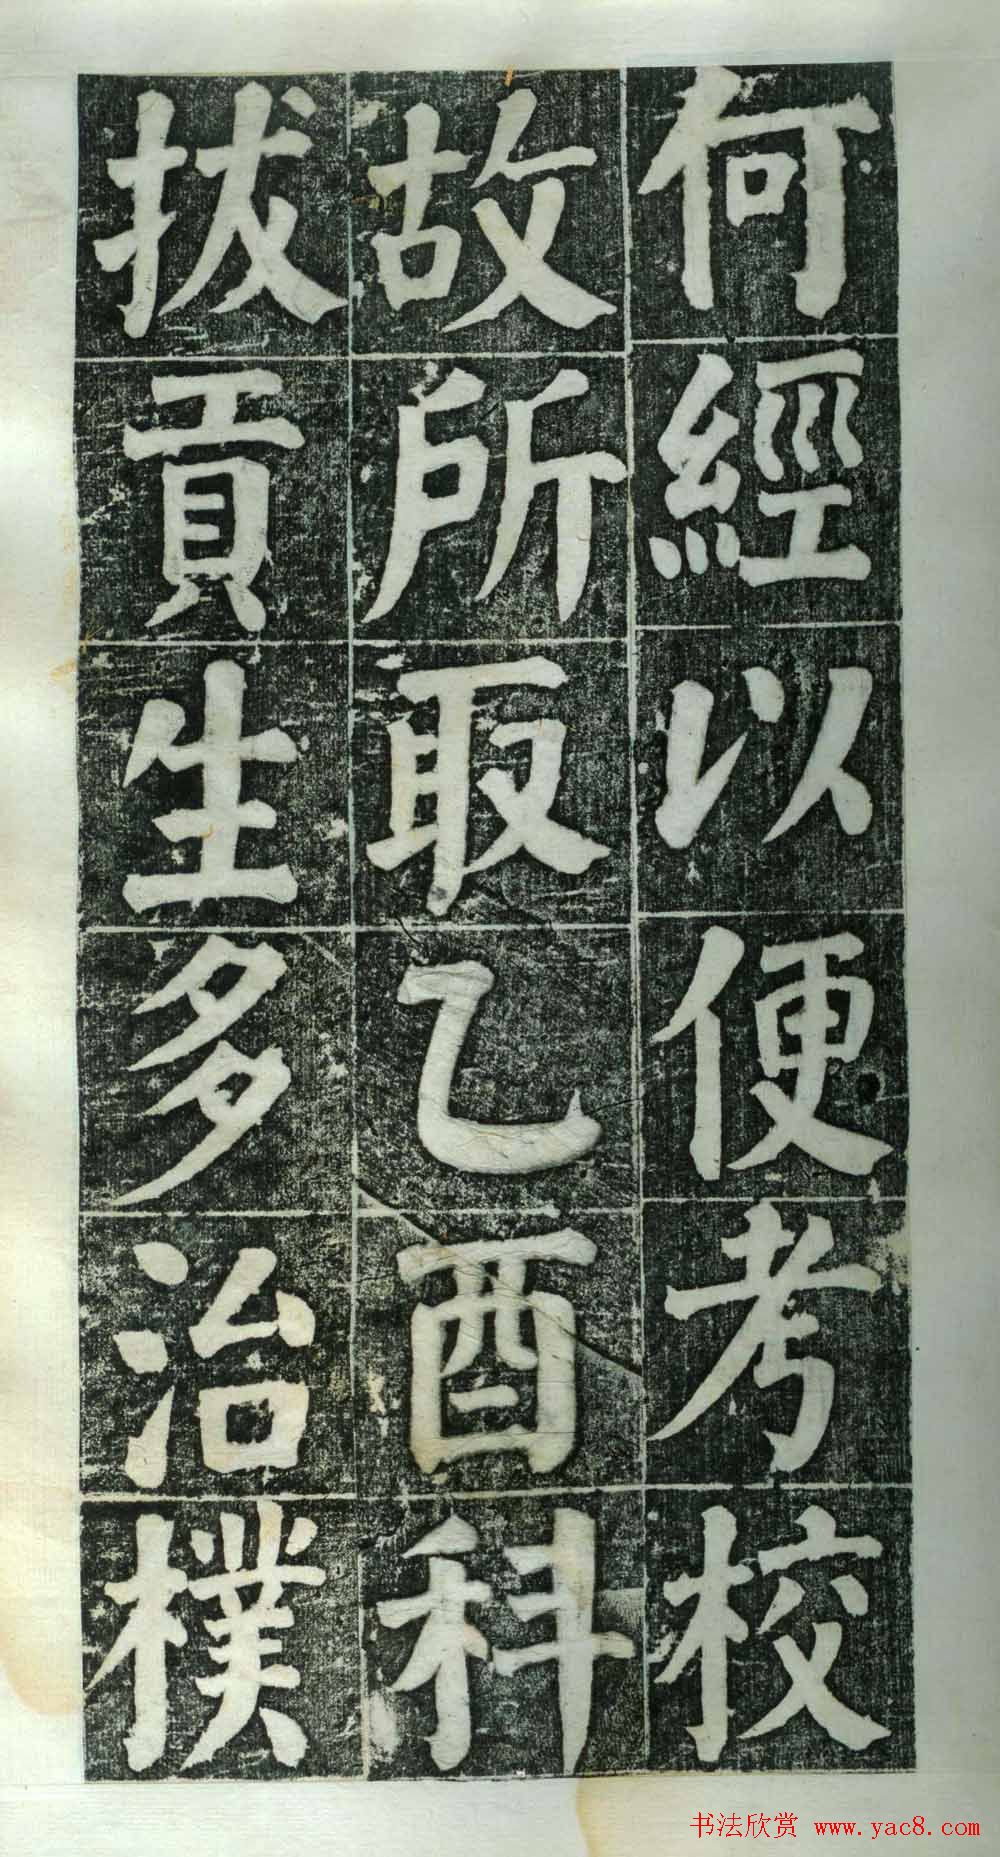 何經以便考校
故所取乙酉科
拔貢生多治樸
书法欣赏 www.yac8.com